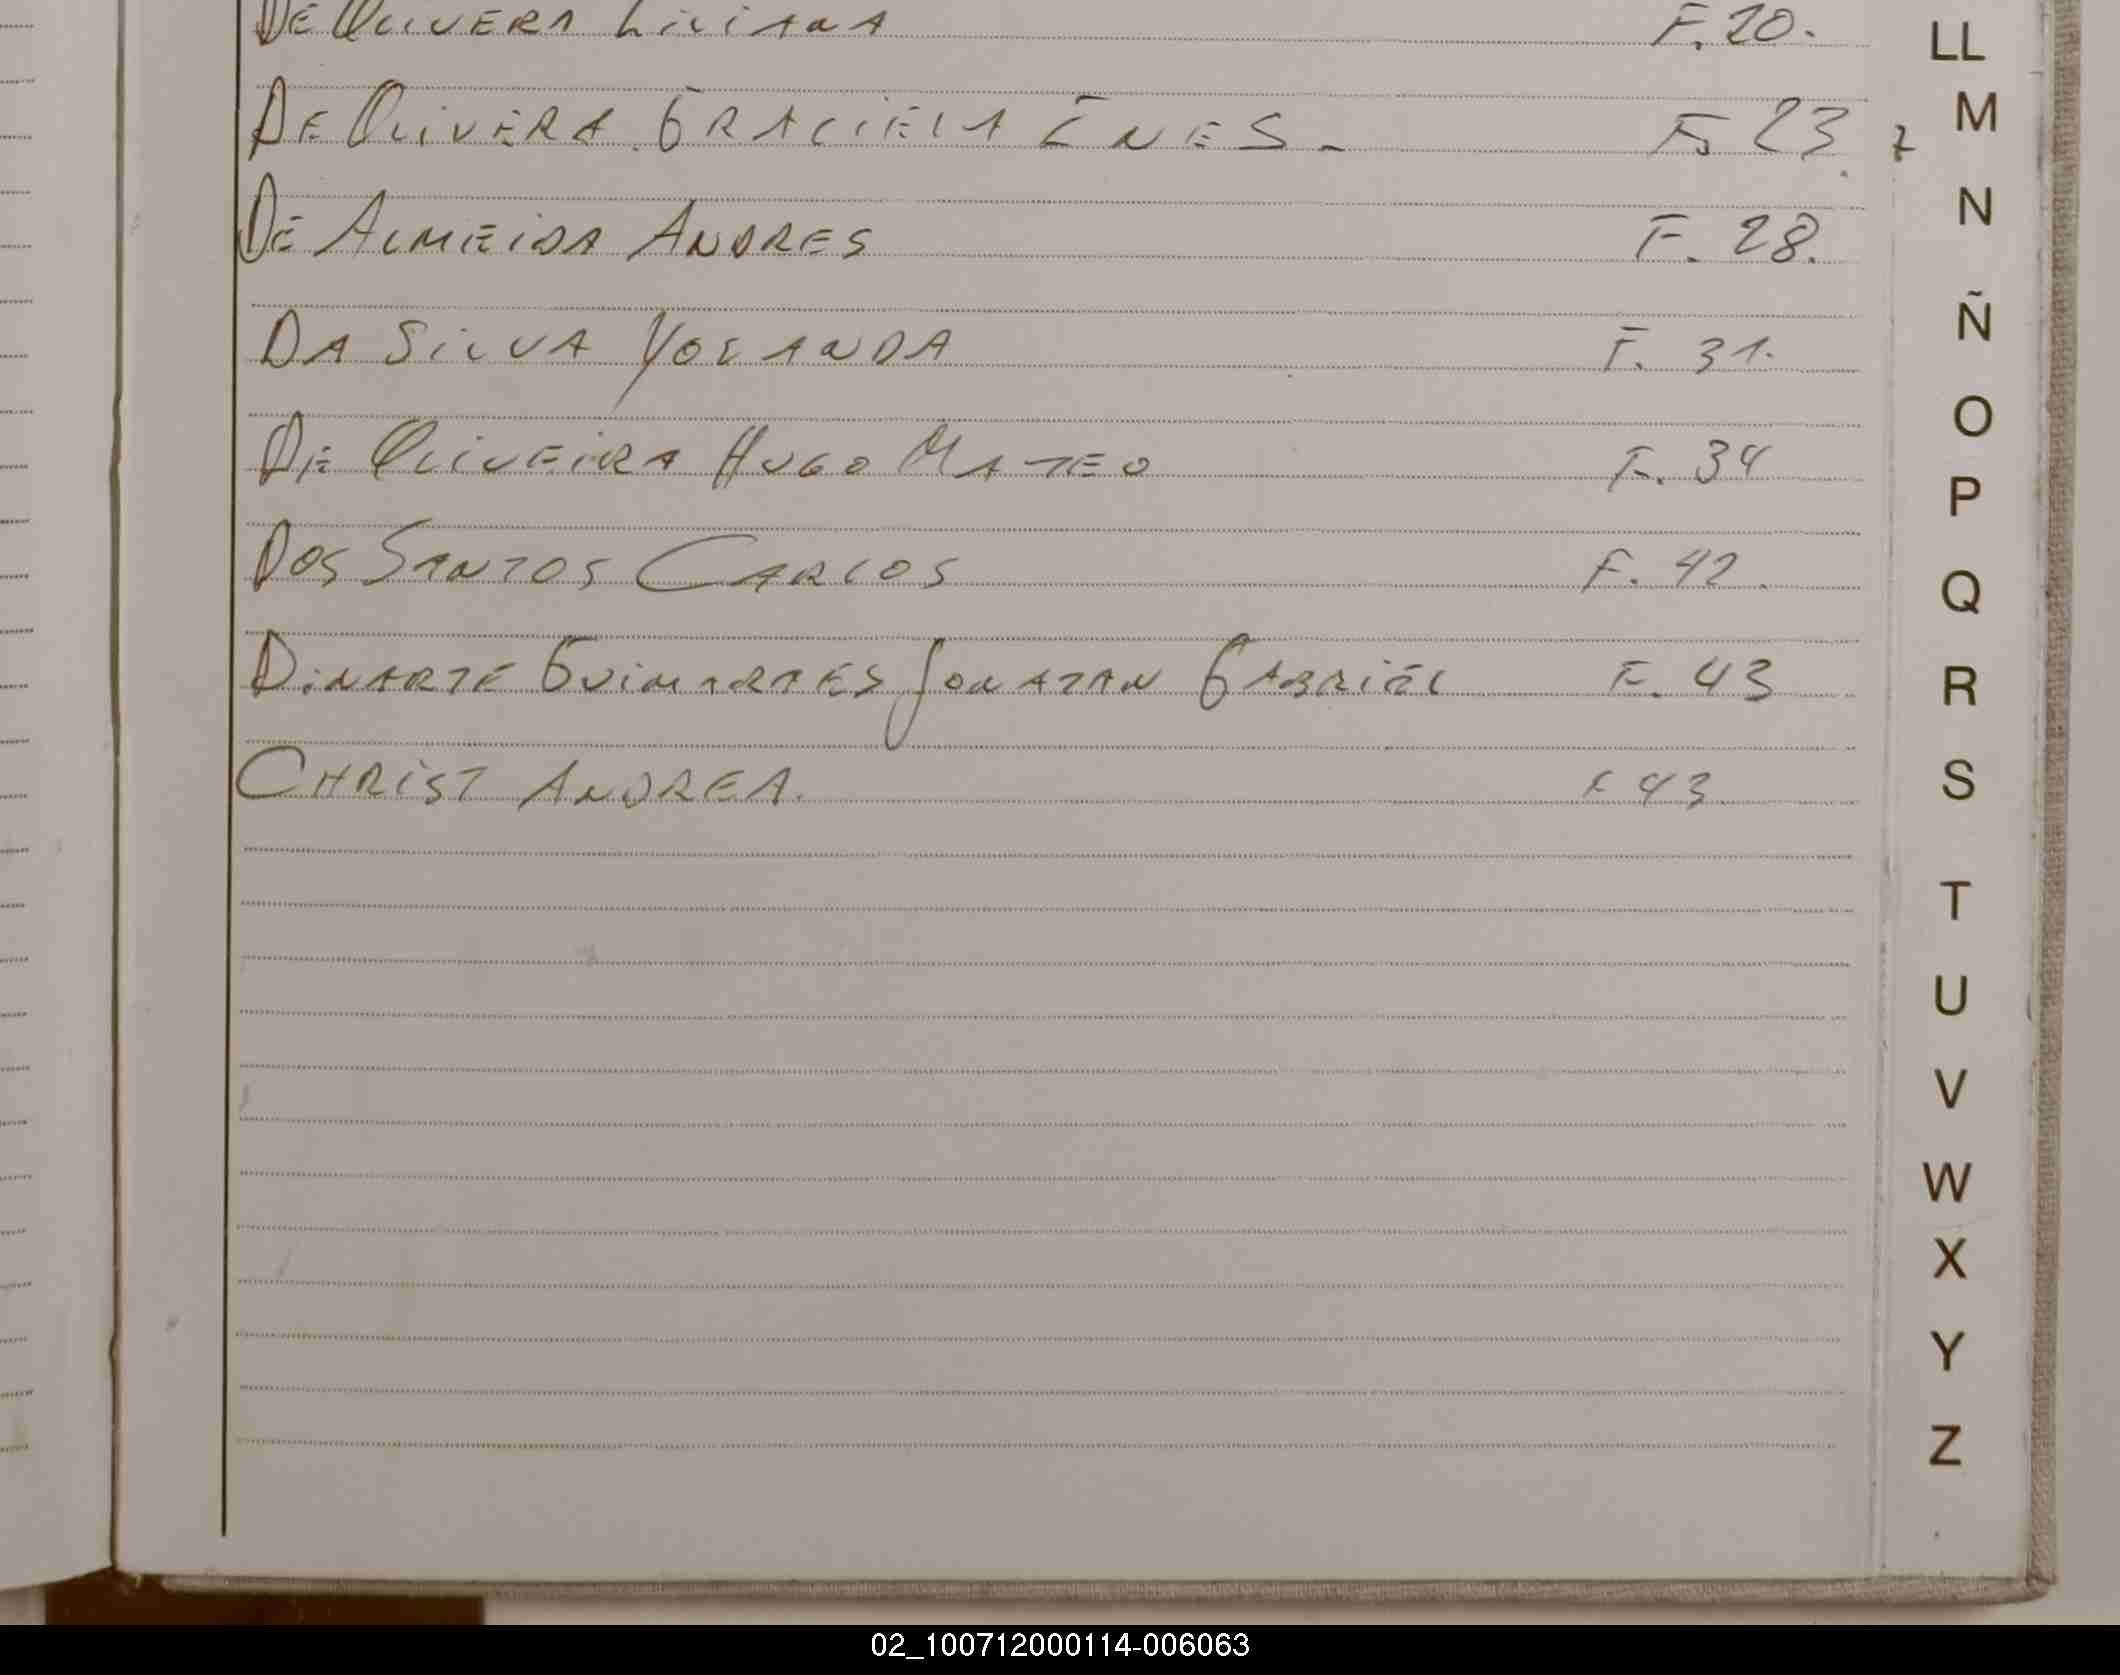 De Olivera Liliana F. 20.
De Olivera Graciela Ines. F. 23
De Almeida Andres F. 28.
Da Silva Yolanda F. 31.
De Oliveira Hugo Mateo F. 34
Dos Santos Carlos F. 42.
Dinarte Guimaraes Jonatan Gabriel F. 43
Christ Andrea. F 43
LL
M
N
Ñ
O
P
Q
R
S
T
U
V
W
X
Y
Z
02_100712000114-006063